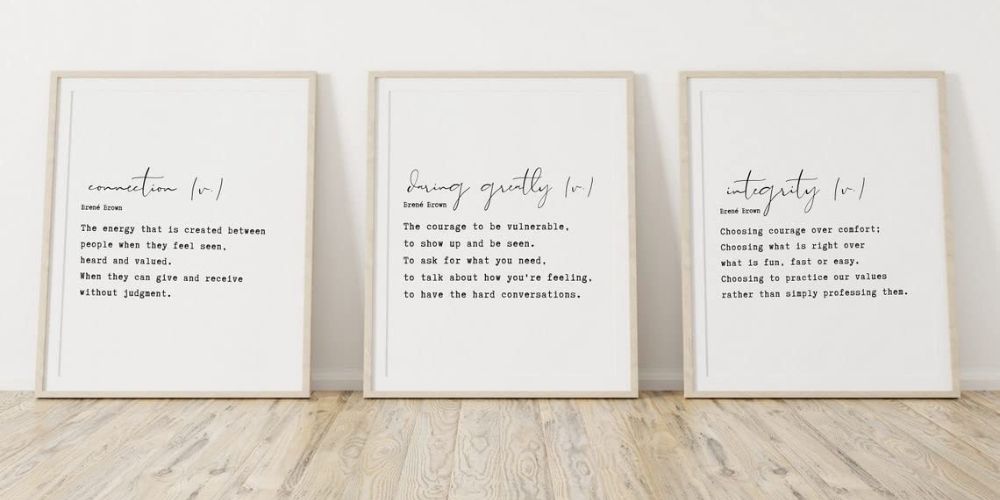 connection (v.)
Brené Brown
The energy that is created between
people when they feel seen,
heard and valued.
When they can give and receive
without judgment.
daring greatly (v.)
Brené Brown
The courage to be vulnerable,
to show up and be seen.
To ask for what you need,
to talk about how you're feeling,
to have the hard conversations.
integrity (v.)
Brené Brown
Choosing courage over comfort;
Choosing what is right over
what is fun, fast or easy.
Choosing to practice our values
rather than simply professing them.